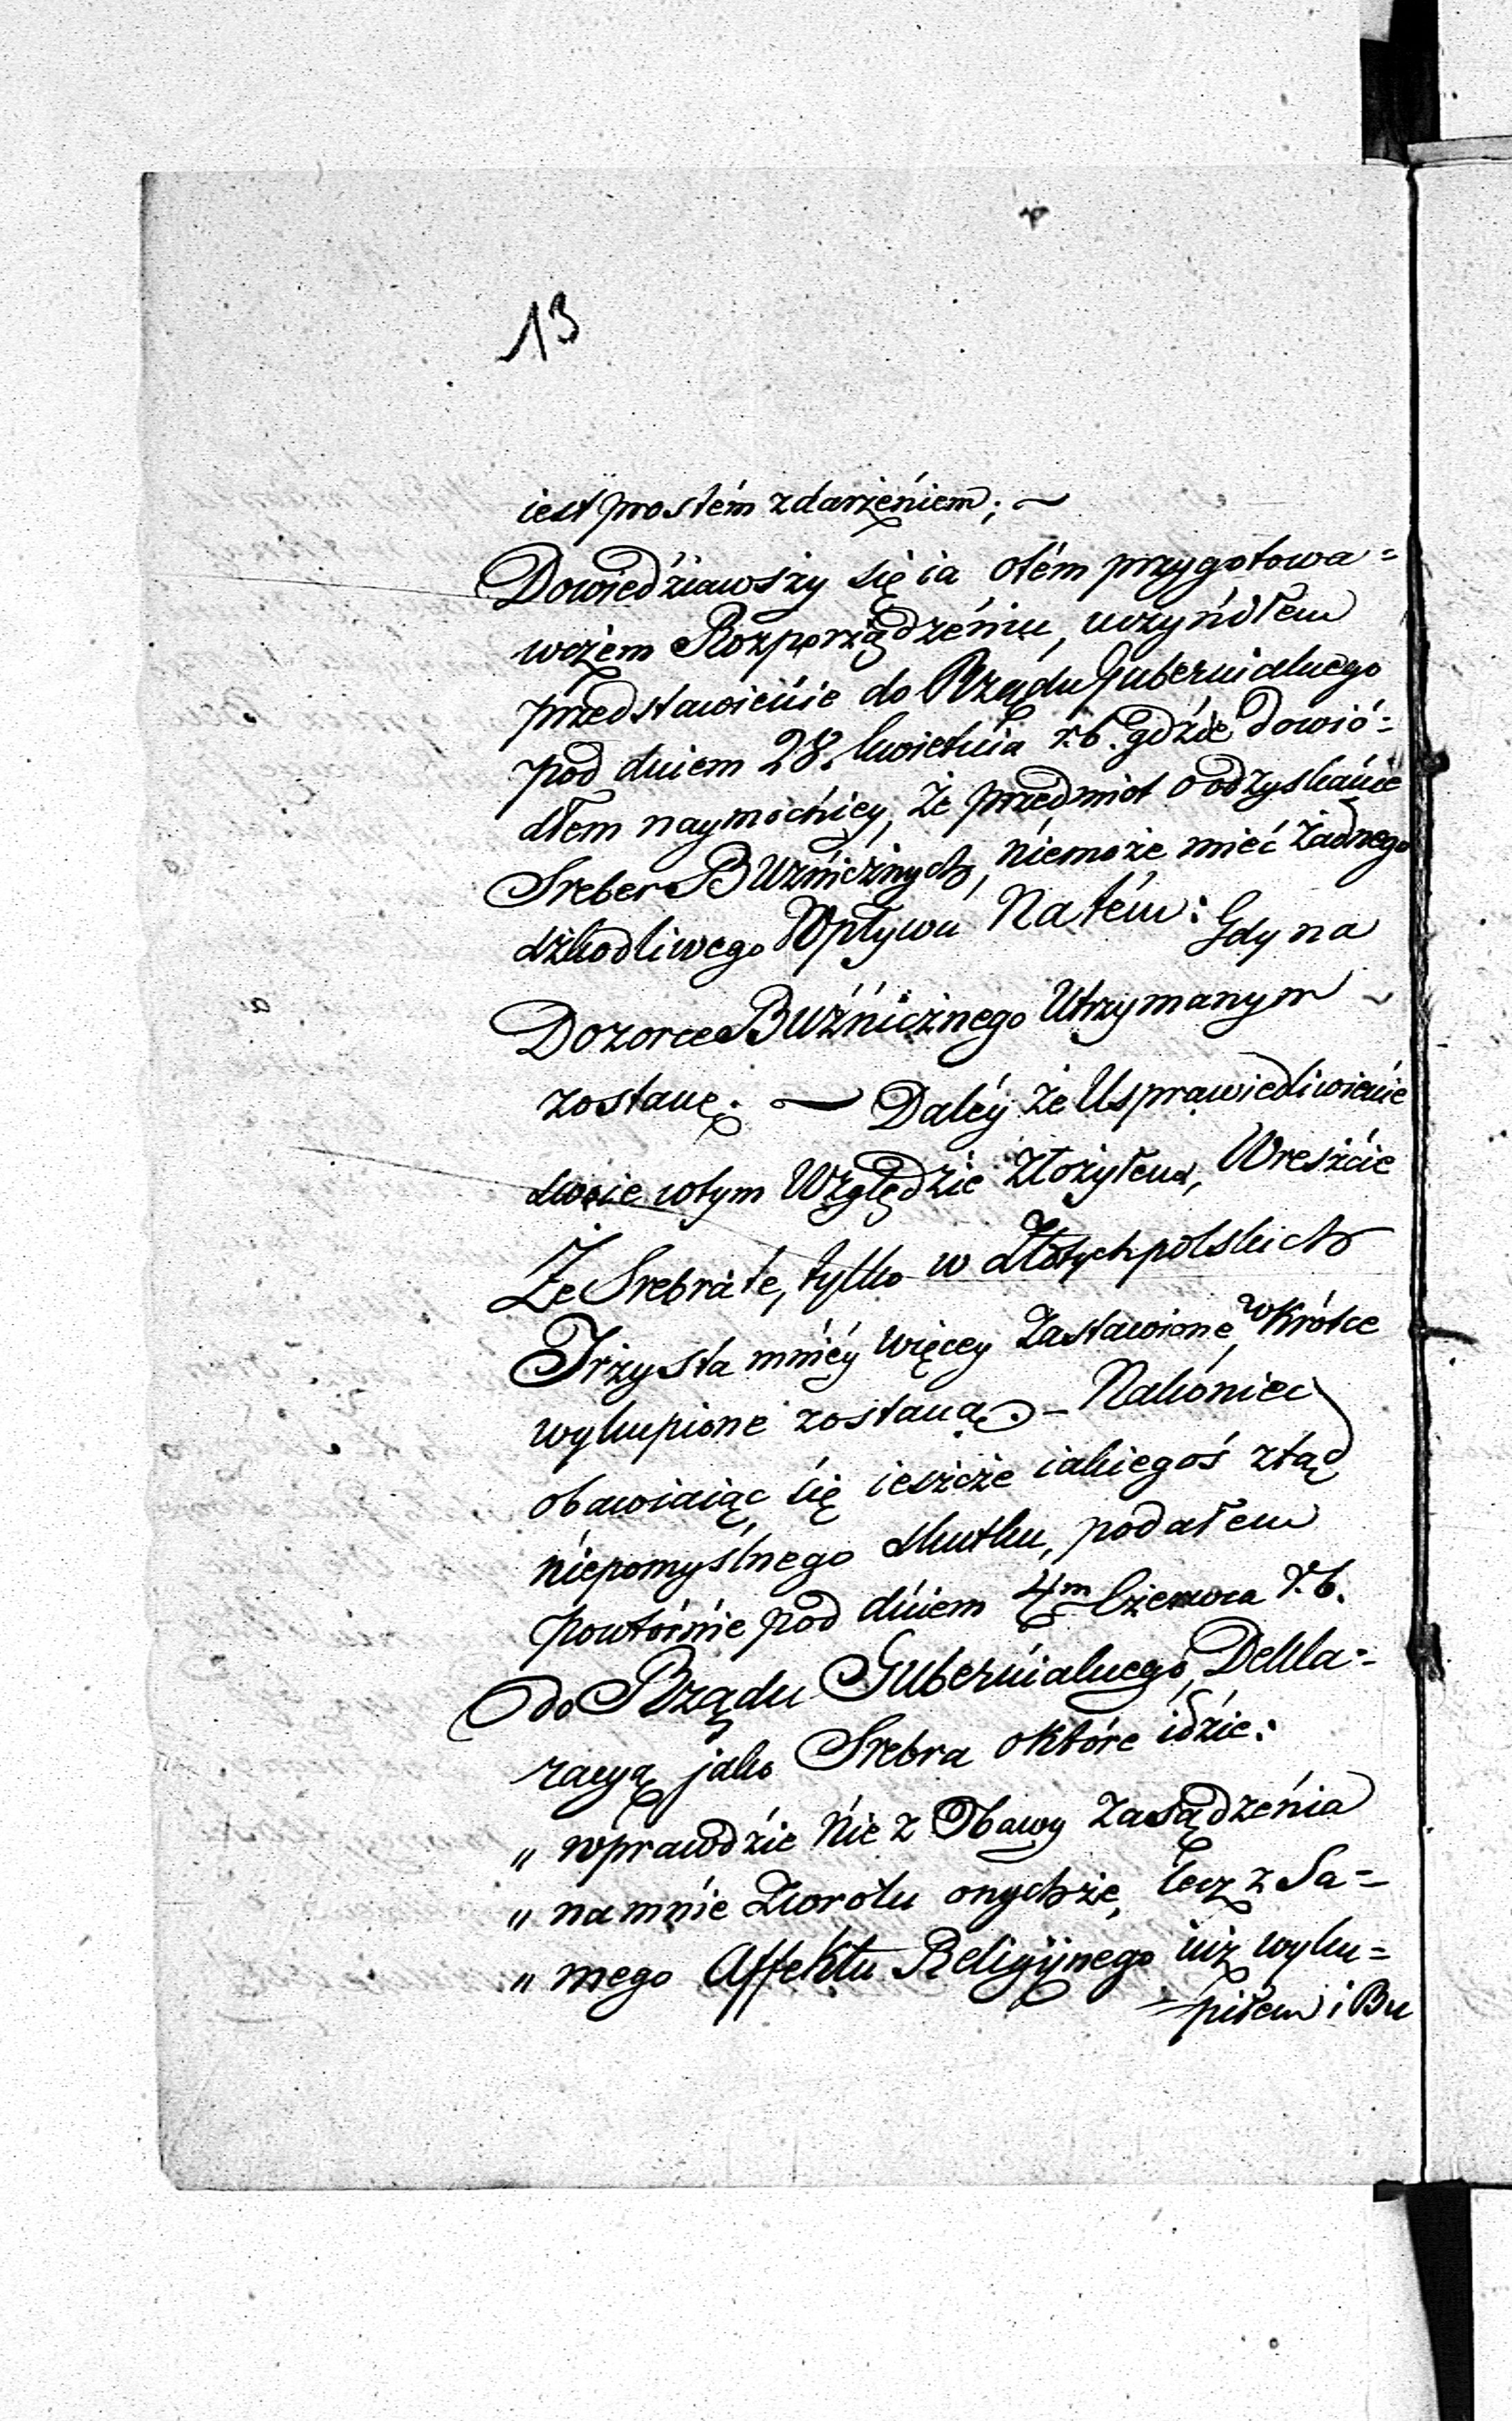 13
iest prostém zdarzéniem; ~
Dowiedźiawszy się ia otém przygotowa=
wczém Rozporządzéniu, uczyniłem
przedstawienie do Rządu Gubernialnego
pod dniem 28. kwietnia r.b. gdzie dowió=
dłem naymocniey, że przedmiot o odzyskanie
Sreber Buźnicznych, niemoże mieć żadnego
szkodliwego Wpływu Na tém: Gdy na
Dozorce Buźnicznego Utrzymanym ~
zostanę. — Daléy że Usprawiedliwienie
swoie wtym Względzie złożyłem, Wreszcie
Że Srebra te, tylko w Złotych polskich
Trzysta mniéy więcey Zastawione, wkrótce
wykupione zostaną. – Nakóniec
obawiaiąc się ieszcze iakiegoś ztąd
niepomyślnego skutku, podałem
powtórnie pod dniem 4m Czerwca r.b.
do Rządu Gubernialnego, Dekla=
racyą jako Srebra o które idzie:
„ wprawdzie Nie z Obawy Zasądzénia
„ na mnie Zwrotu onychże, lecz z Sa=
„ mego Affektu Religijnego iuż wyku=
=piłem i Bu